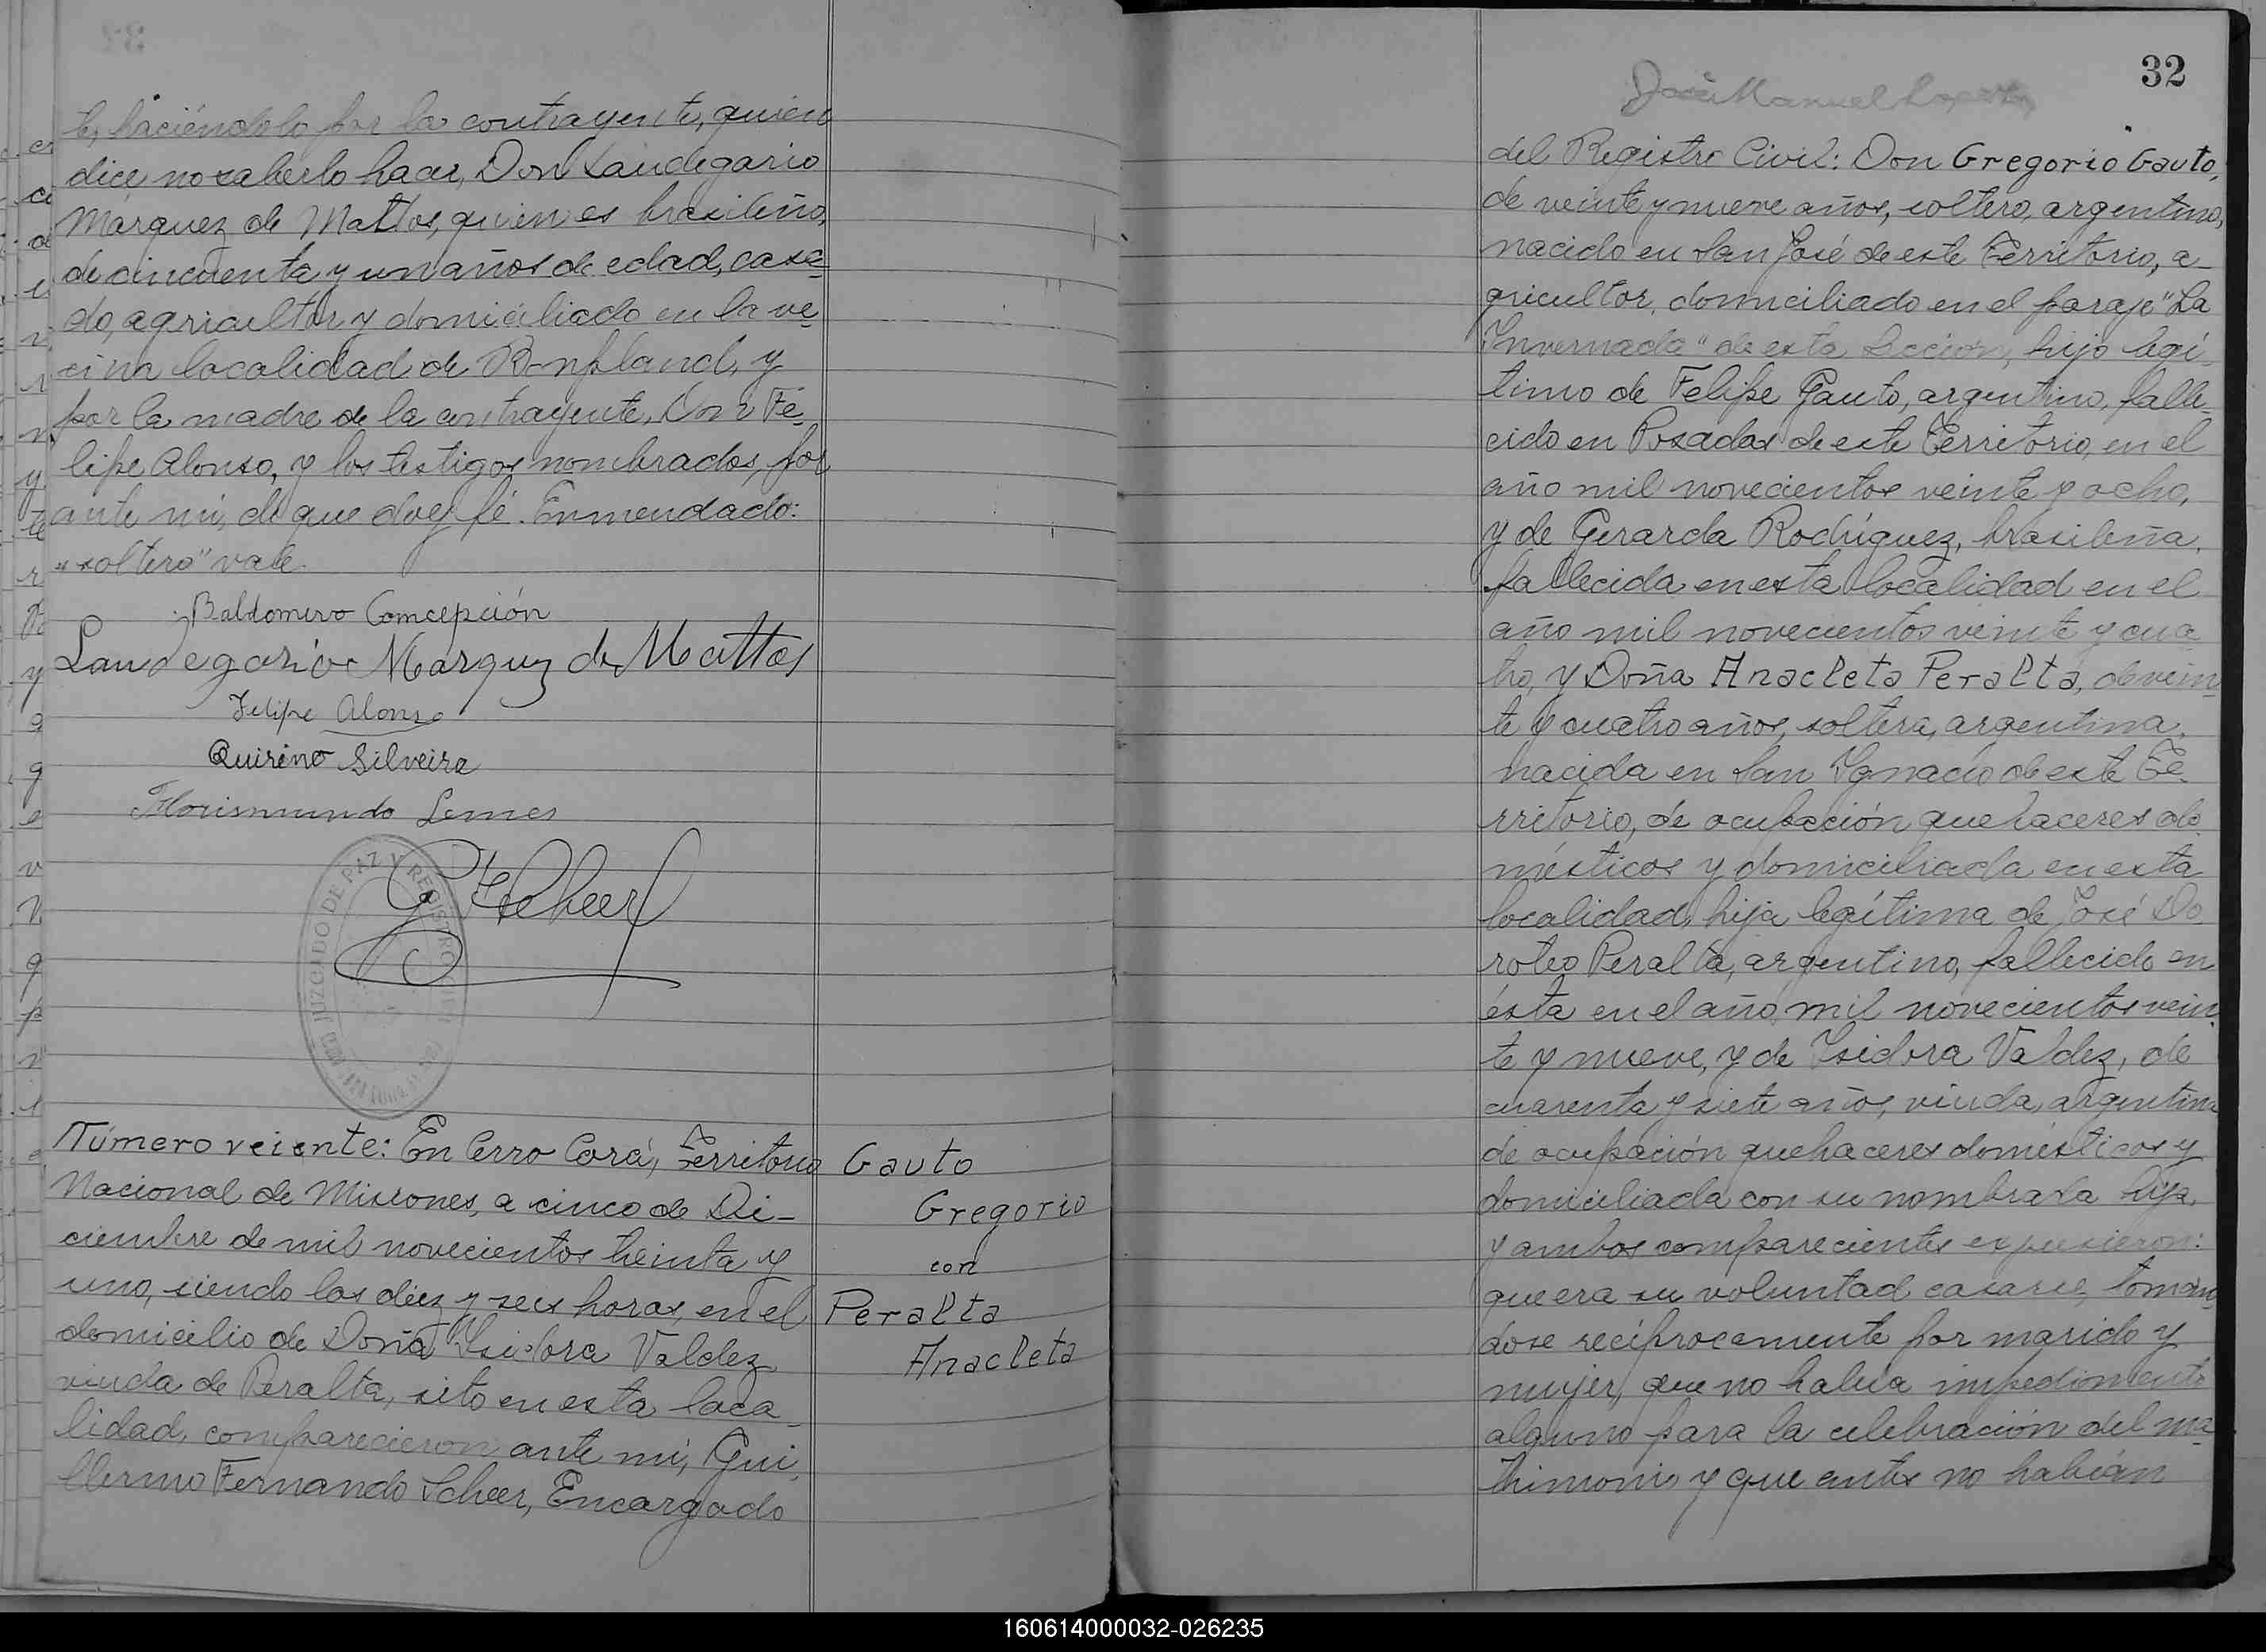 te, haciéndolo por la contrayente, quien
dice no saberlo hacer, Don Laudegario
Márquez de Mattos, quien es brasileño,
de cincuenta y un años de edad, casa-
do, agricultor y domiciliado en la ve-
cina localidad de Bonpland, y
por la madre de la contrayente, Don Fe-
lipe Alonso, y los testigos nombrados, por
ante mí, de que doy fé. Enmendado:
"soltero" vale.
Baldomero Comcepción
Laudegario Marquz de Mattos
Felipe Alonso
Quirino Silveira
Florismundo Lemes
G F Scheer
JUZGADO DE PAZ Y REGISTRO CIVIL
Número veiente: En Cerro Corá, Territorio
Nacional de Misiones, a cinco de Di-
ciembre de mil novecientos treinta y
uno, siendo las diez y seis horas, en el
domicilio de Doña Isidora Valdez
viuda de Peralta, sito en esta loca-
lidad, comparecieron ante mí, Gui-
llermo Fernando Scheer, Encargado
Gauto
Gregorio
con
Peralta
Anacleta
32
José Manuel
del Registro Civil: Don Gregorio Gauto,
de veinte y nueve años, soltero, argentino,
nacido en San José de este Territorio, a-
gricultor, domiciliado en el paraje "La
Invernada" de esta Seccion, hijo legí-
timo de Felipe Gauto, argentino, falle-
cido en Posadas de este Territorio, en el
año mil novecientos veinte y ocho,
y de Gerarda Rodríguez, brasileña,
fallecida en esta localidad en el
año mil novecientos veinte y cua-
tro, y Doña Anacleta Peralta, de vein-
te y cuatro años, soltera, argentina,
nacida en San Ignacio de este Te-
rritorio, de ocupación quehaceres do-
mésticos y domiciliada en esta
localidad, hija legítima de José Do-
roteo Peralta, argentino, fallecido en
ésta en el año mil novecientos vein-
te y nueve, y de Isidora Valdez, de
cuarenta y siete años, viuda, argentina
de ocupación quehaceres domésticos y
domiciliada con su nombrada hija,
y ambos comparecientes expusieron:
que era su voluntad casarse, toman-
dose recíprocamente por marido y
mujer, que no había impedimento
alguno para la celebración del ma-
trimonio y que antes no habían
160614000032-026235